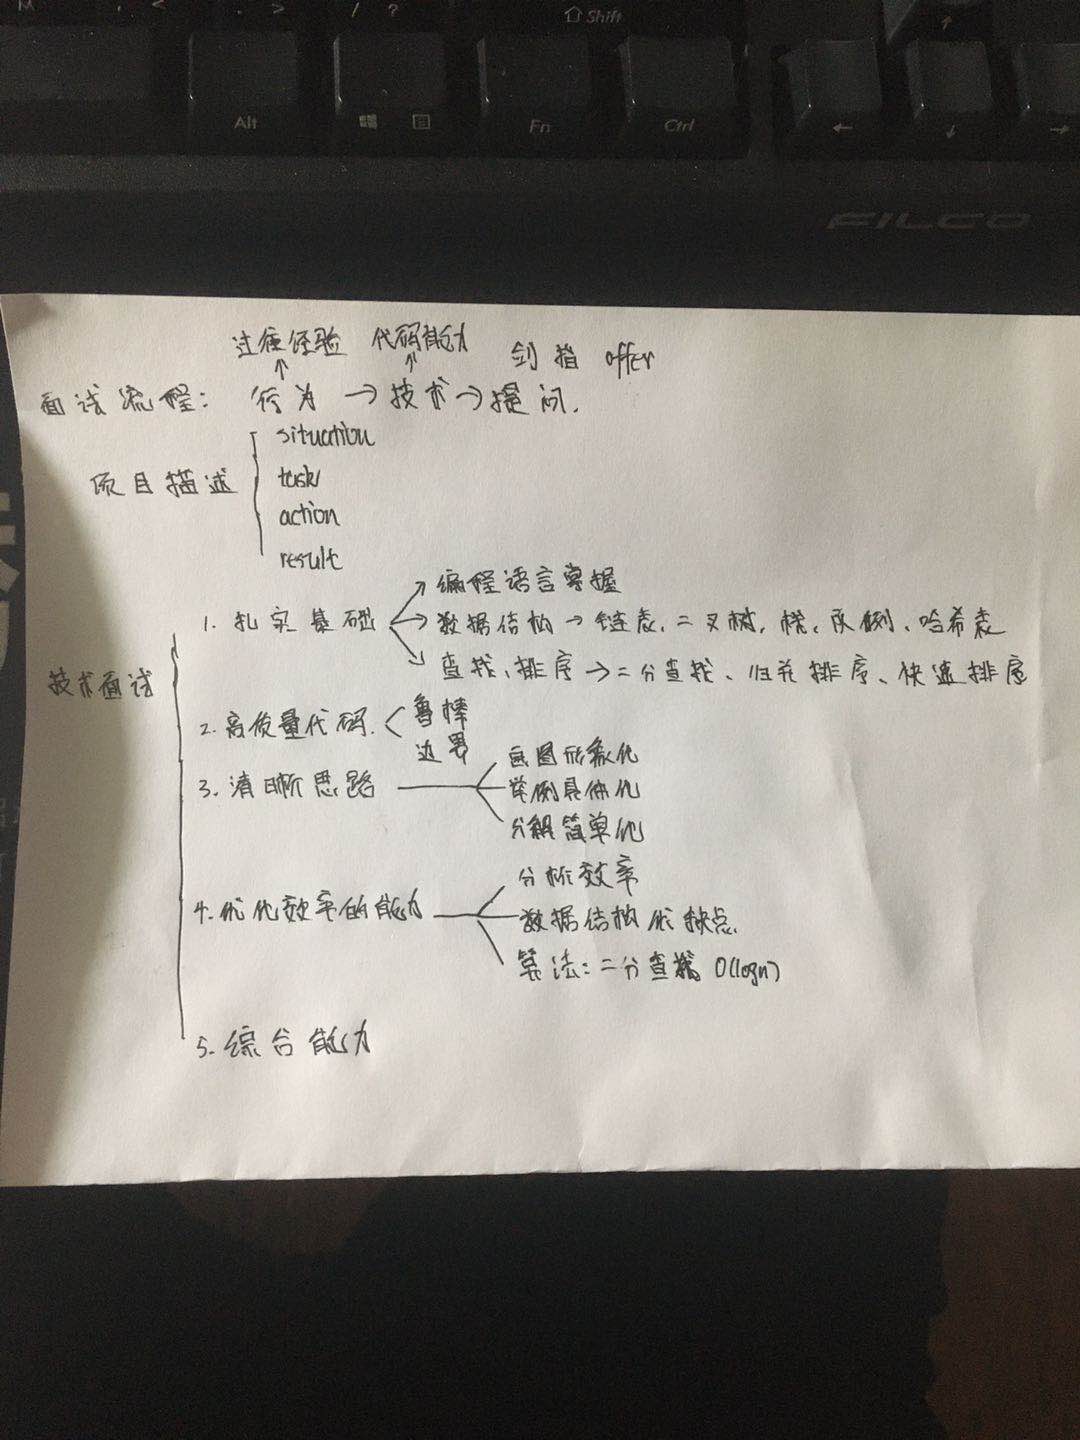 M , < . > / ? ⇧ Shift
Alt Fn Ctrl ← ↓ →
FILCO
过往经验 代码能力 剑指 offer
面试流程: 行为 → 技术 → 提问.
项目描述
situation
task
action
result
技术面试
1. 扎实基础
→ 编程语言掌握
→ 数据结构 → 链表、二叉树、栈、队列、哈希表
→ 查找、排序 → 二分查找、归并排序、快速排序
2. 高质量代码.
鲁棒
边界
3. 清晰思路
画图形象化
举例具体化
分解简单化
4. 优化效率的能力
分析效率
数据结构优缺点
算法: 二分查找 O(logn)
5. 综合能力